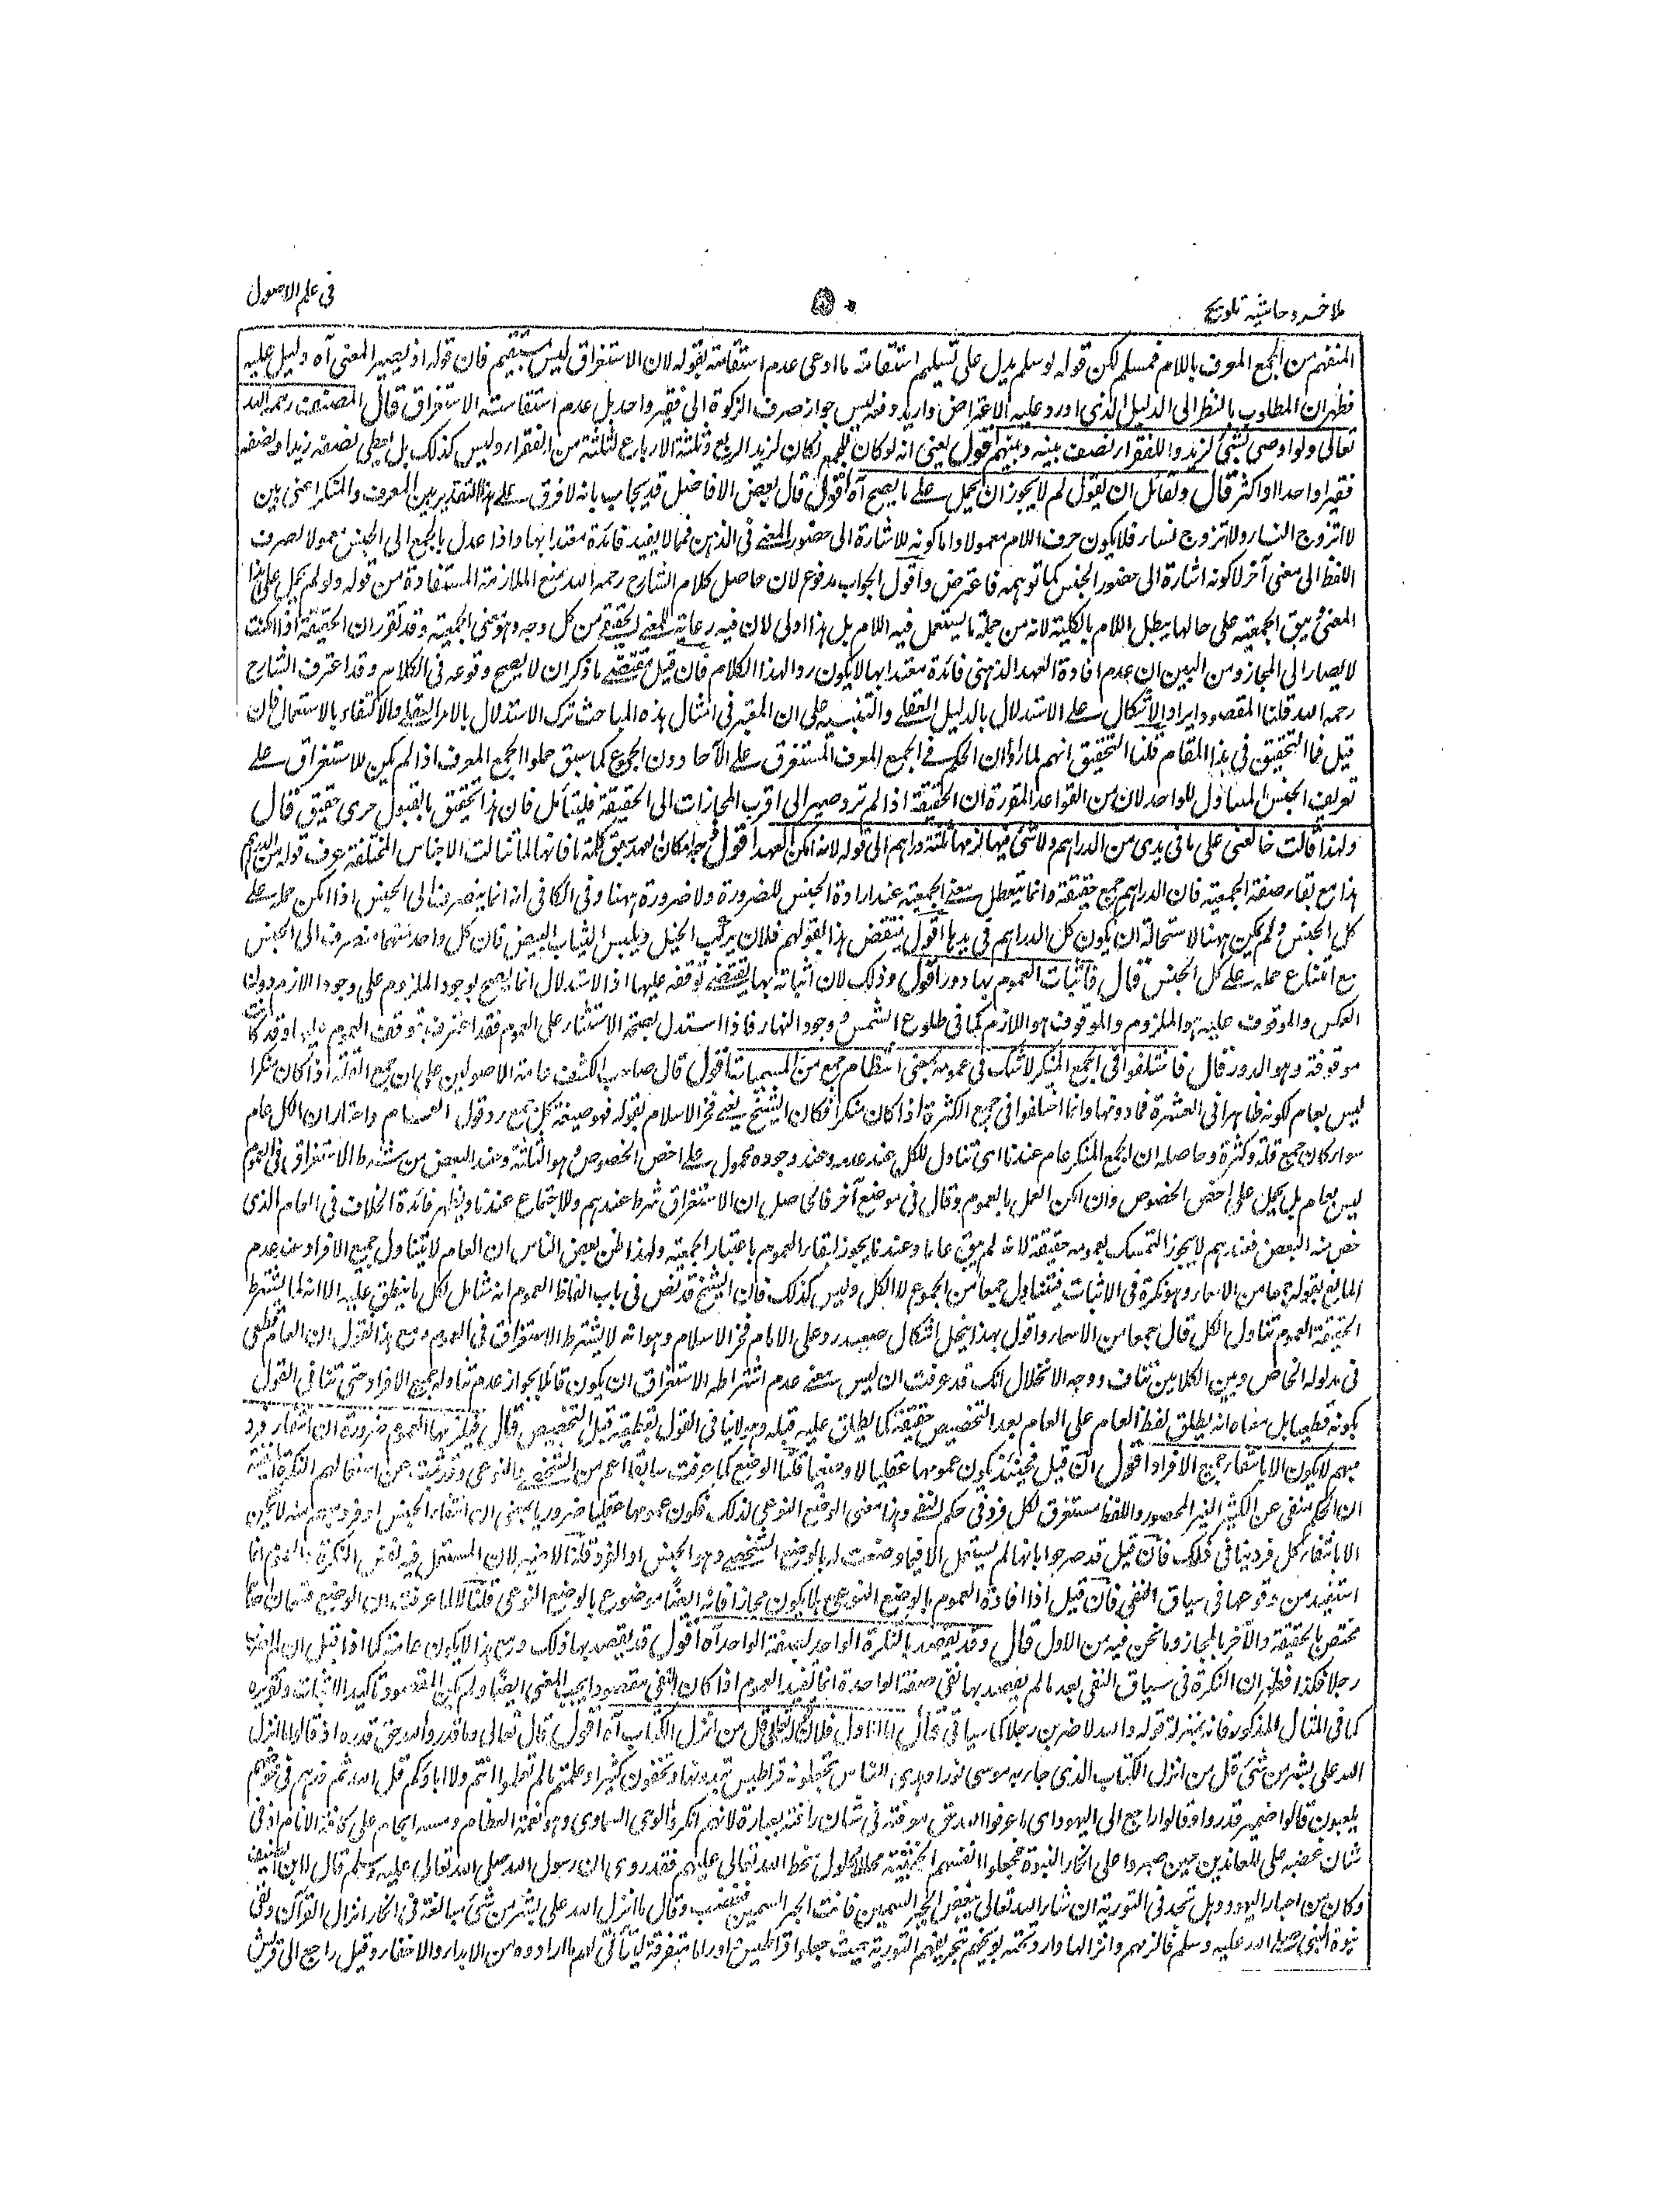 ملا خسرو حاشیه تلویح
۵۰
فی علم الاصول
المنفهم من الجمع المعرف باللام فمسلم لکن قوله لو سلم یدل علی تسلیم استقامته ما ادعی عدم استقامته بقوله لان الاستغراق لیس بمستقیم فان قوله اذ یصیر المعنی آه دلیل علیه
فظهر ان المطلوب بالنظر الی الدلیل الذی اورد علیه الاعتراض وارید دفعه لیس جواز صرف الزکوة الی فقیر واحد بل عدم استقامته الاستغراق قال المصنف رحمه الله
تعالی ولو اوصی بشئ لزید وللفقراء نصف بینه وبینهم اقول یعنی انه لو کان للجمع لکان لزید الربع وثلثة الارباع لثلثة من الفقراء ولیس کذلک بل یعطی نصفه زیدا ونصفه
فقیرا واحدا او اکثر قال ولقائل ان یقول لم لا یجوز ان یحمل علی ما یصح آه اقول قال بعض الافاضل قد یجاب بانه لا فرق علی هذا التقدیر بین المعرف والمنکر اعنی بین
لا اتزوج النساء ولا اتزوج نساء فلا یکون حرف اللام معمولا واما کونه للاشارة الی حضور المعنی فی الذهن فمما لا یفید فائدة معتدا بها واذا عدل بالجمع الی الجنس عمولا لصرف
اللفظ الی معنی آخر لا کونه اشارة الی حضور الجنس کما توهمه فاعترض واقول الجواب مدفوع لان حاصل کلام الشارح رحمه الله منع الملازمة المستفادة من قوله ولو لم یحمل علی هذا
المعنی ویبق الجمعیة علی حالها یبطل اللام بالکلیة لانه من جملة ما یستعمل فیه اللام بل هذا اولی لان فیه رعایة للمعنی الحقیقی من کل وجه وهو معنی الجمعیة وقد تقرر ان الحقیقة اذا امکنت
لا یصار الی المجاز ومن البین ان عدم افادة العهد الذهنی فائدة معتدا بها لا یکون ردا لهذا الکلام فان قیل مقتضی ما ذکر ان لا یصح وقوعه فی الکلام وقد اعترف الشارح
رحمه الله قلنا المقصود ایراد الاشکال علی الاستدلال بالدلیل العقلی والتنبیه علی ان المعتبر فی امثال هذه المباحث ترک الاستدلال بالامر العقلی والاکتفاء بالاستعمال فان
قیل فما التحقیق فی هذا المقام قلنا التحقیق انهم لما رأوا ان الحکم فی الجمع المعرف المستغرق علی الآحاد دون المجموع کما سبق حملوا الجمع المعرف اذا لم یکن للاستغراق علی
تعریف الجنس المتناول للواحد لان من القواعد المقررة ان الحقیقة اذا لم ترد صیر الی اقرب المجازات الی الحقیقة فلیتأمل فان هذا تحقیق بالقبول حری حقیق قال
ولهذا لو قالت خالعنی علی ما فی یدی من الدراهم ولا شئ فیها لزمها ثلثة دراهم الی قوله لانه امکن العهد اقول وجه امکان العهد سبق کلمة ما فانها لما تناولت الاجناس المختلفة عرف قوله من الدراهم
هذا مع بقاء صفة الجمعیة فان الدراهم جمع حقیقة وانما یتعطل معنی الجمعیة عند ارادة الجنس للضرورة ولا ضرورة ههنا وفی الکافی انه انما ینصرف الی الجنس اذا امکن حمله علی
کل الجنس ولم یمکن ههنا لاستحالة ان یکون کل الدراهم فی یدها اقول ینتقض هذا بقولهم فلان یرکب الخیل ویلبس الثیاب البیض فان کل واحد منهما منصرف الی الجنس
مع امتناع حمله علی کل الجنس قال فاثبات العموم بها دور اقول وذلک لان اثباته بها یقتضی توقفه علیها اذ الاستدلال انما یصح بوجود الملزوم علی وجود اللازم دون
العکس والموقوف علیه هو الملزوم والموقوف هو اللازم کما فی طلوع الشمس ووجود النهار فاذا استدل بصحة الاستثناء علی العموم فقد اعترف بتوقف العموم علیها وقد کانت
موقوفة وهو الدور قال فاختلفوا فی الجمع المنکر لا شک فی عمومه بمعنی انتظام جمع من المسمیات اقول قال صاحب الکشف عامة الاصولیین علی ان جمع القلة اذا کان منکرا
لیس بعام لکونه ظاهرا فی العشرة فما دونها وانما اختلفوا فی جمع الکثرة اذا کان منکرا فکان الشیخ یعنی فخر الاسلام بقوله فهو صیغة کل جمع رد قول العام واختار ان الکل عام
سواء کان جمع قلة وکثرة وحاصله ان الجمع المنکر عام عندنا ای تناول للکل عند عدمه وعند وجوده محمول علی اخص الخصوص وهو الثلثة وعند البعض من شرط الاستغراق فی العموم
لیس بعام بل یحمل علی اخص الخصوص وان امکن العمل بالعموم وقال فی موضع آخر فالحاصل ان الاستغراق شرط عندهم والاجتماع عندنا ویظهر فائدة الخلاف فی العام الذی
خص منه البعض فعندهم لا یجوز التمسک بعمومه حقیقة لانه لم یبق عاما وعندنا یجوز لبقاء العموم باعتبار الجمعیة ولهذا ظن بعض الناس ان العام لا یتناول جمیع الافراد عند عدم
المانع بقوله جمعا من الاسماء وهو نکرة فی الاثبات فیتناول جمعا من المجموع لا الکل ولیس کذلک فان الشیخ قد نص فی باب الفاظ العموم انه شامل لکل ما ینطلق علیه الا انه لما لم یشترط
الحقیقة العموم تناول الکل قال جمعا من الاسماء واقول بهذا ینحل اشکال صعب یرد علی الامام فخر الاسلام وهو انه لا یشترط الاستغراق فی العموم ومع هذا القول ان العام قطعی
فی مدلوله الخاص وبین الکلامین تناف ووجه الانحلال انک قد عرفت ان لیس معنی عدم اشتراطه الاستغراق ان یکون قائلا بجواز عدم تناوله جمیع الافراد حتی تنافی القول
بکونه قطعیا بل معناه انه یطلق لفظ العام علی العام بعد التخصیص حقیقة کما یطلق علیه قبله وهو لا ینافی القول بقطعیته قبل التخصیص قال فیلزمها العموم ضرورة ان انتفاء فرد
مبهم لا یکون الا بانتفاء جمیع الافراد اقول فان قیل فحینئذ یکون عمومها عقلیا لا وضعیا قلنا الوضع کما عرفت سابقا اعم من الشخصی والنوعی وقد ثبت من استعمالهم النکرة المنفیة
ان الحکم منفی عن الکثیر الغیر المحصور واللفظ مستغرق لکل فرد فی حکم النفی وهذا معنی الوضع النوعی لذلک فکون عمومها عقلیا ضروریا بمعنی ان انتفاء الجنس او فرد مبهم منه لا یمکن
الا بانتفاء کل فرد ینافی ذلک فان قیل قد صرحوا بانها لم یستعمل الا فیما وضعت له بالوضع الشخصی وهو الجنس او الفرد قلنا لا منع لان المستعمل فیه نفس النکرة والعموم انما
استفید من وقوعها فی سیاق النفی فان قیل اذا افادة العموم بالوضع النوعی هلا یکون مجازا فانه ایضا موضوع بالوضع النوعی قلنا لا لما عرفت ان الوضع قسمان
مختص بالحقیقة والآخر بالمجاز وما نحن فیه من الاول قال وقد یقصد بالنکرة الواحد بصفة الواحد آه اقول قد یقصد بها ذلک ومع هذا لا یکون عامة کما اذا قیل ان لم اضرب
رجلا فکذا فظهر ان النکرة فی سیاق النفی بعد ما لم یقصد بها نفی صفة الواحدة انما تفید العموم اذا کان النفی مقصودا بحسب المعنی ایضا ولم یکن المقصود تاکید الاثبات وتقریره
کما فی المثال المذکور فانه بمنزلة قوله والله لاضربن رجلا کما سیاتی قال اما الاول فلقوله تعالی قل من انزل الکتاب آه اقول قال تعالی وما قدروا الله حق قدره اذ قالوا ما انزل
الله علی بشر من شئ قل من انزل الکتاب الذی جاء به موسی نورا وهدی للناس تجعلونه قراطیس تبدونها وتخفون کثیرا وعلمتم ما لم تعلموا انتم ولا اباؤکم قل الله ثم ذرهم فی خوضهم
یلعبون قالوا ضمیر قدروا وقالوا راجع الی الیهود ای ما عرفوا الله حق معرفته فی شان رافته بعباده لانهم انکروا الوحی السماوی وهو نعمة العظام ومنته الجسام علی کافة الانام او فی
شان غضبه علی المعاندین حین جسروا علی انکار النبوة فجعلوا انفسهم الخبیثة محلا لحلول سخط الله تعالی علیهم فقد روی ان رسول الله صلی الله تعالی علیه وسلم قال لابن الضیف
وکان من احبار الیهود هل تجد فی التوریة ان شاء الله تعالی یبغض الحبر السمین فانت الحبر السمین فغضب وقال ما انزل الله علی بشر من شئ مبالغة فی انکار انزال القرآن ونفی
نبوة النبی صلی الله علیه وسلم فالزمهم وانزالها وارد تحته توبیخهم تحریفهم التوریة بحیث جعلوا قراطیس اوراقا متفرقة لیتأتی لهم ما ارادوه من الابداء والاخفاء وقیل راجع الی قریش